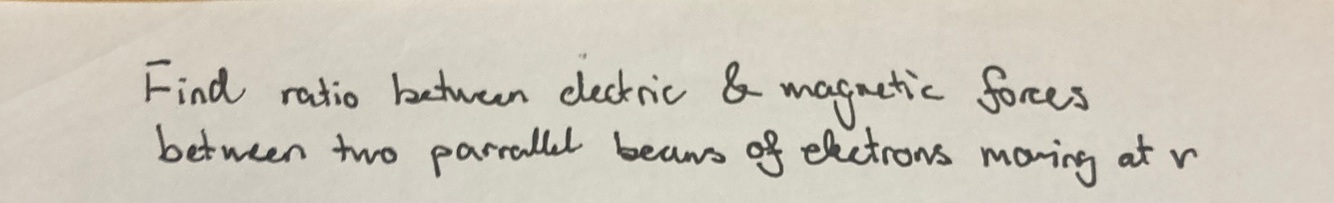 Find ratio between electric & magnetic forces
between two parrallel beams of electrons moving at v